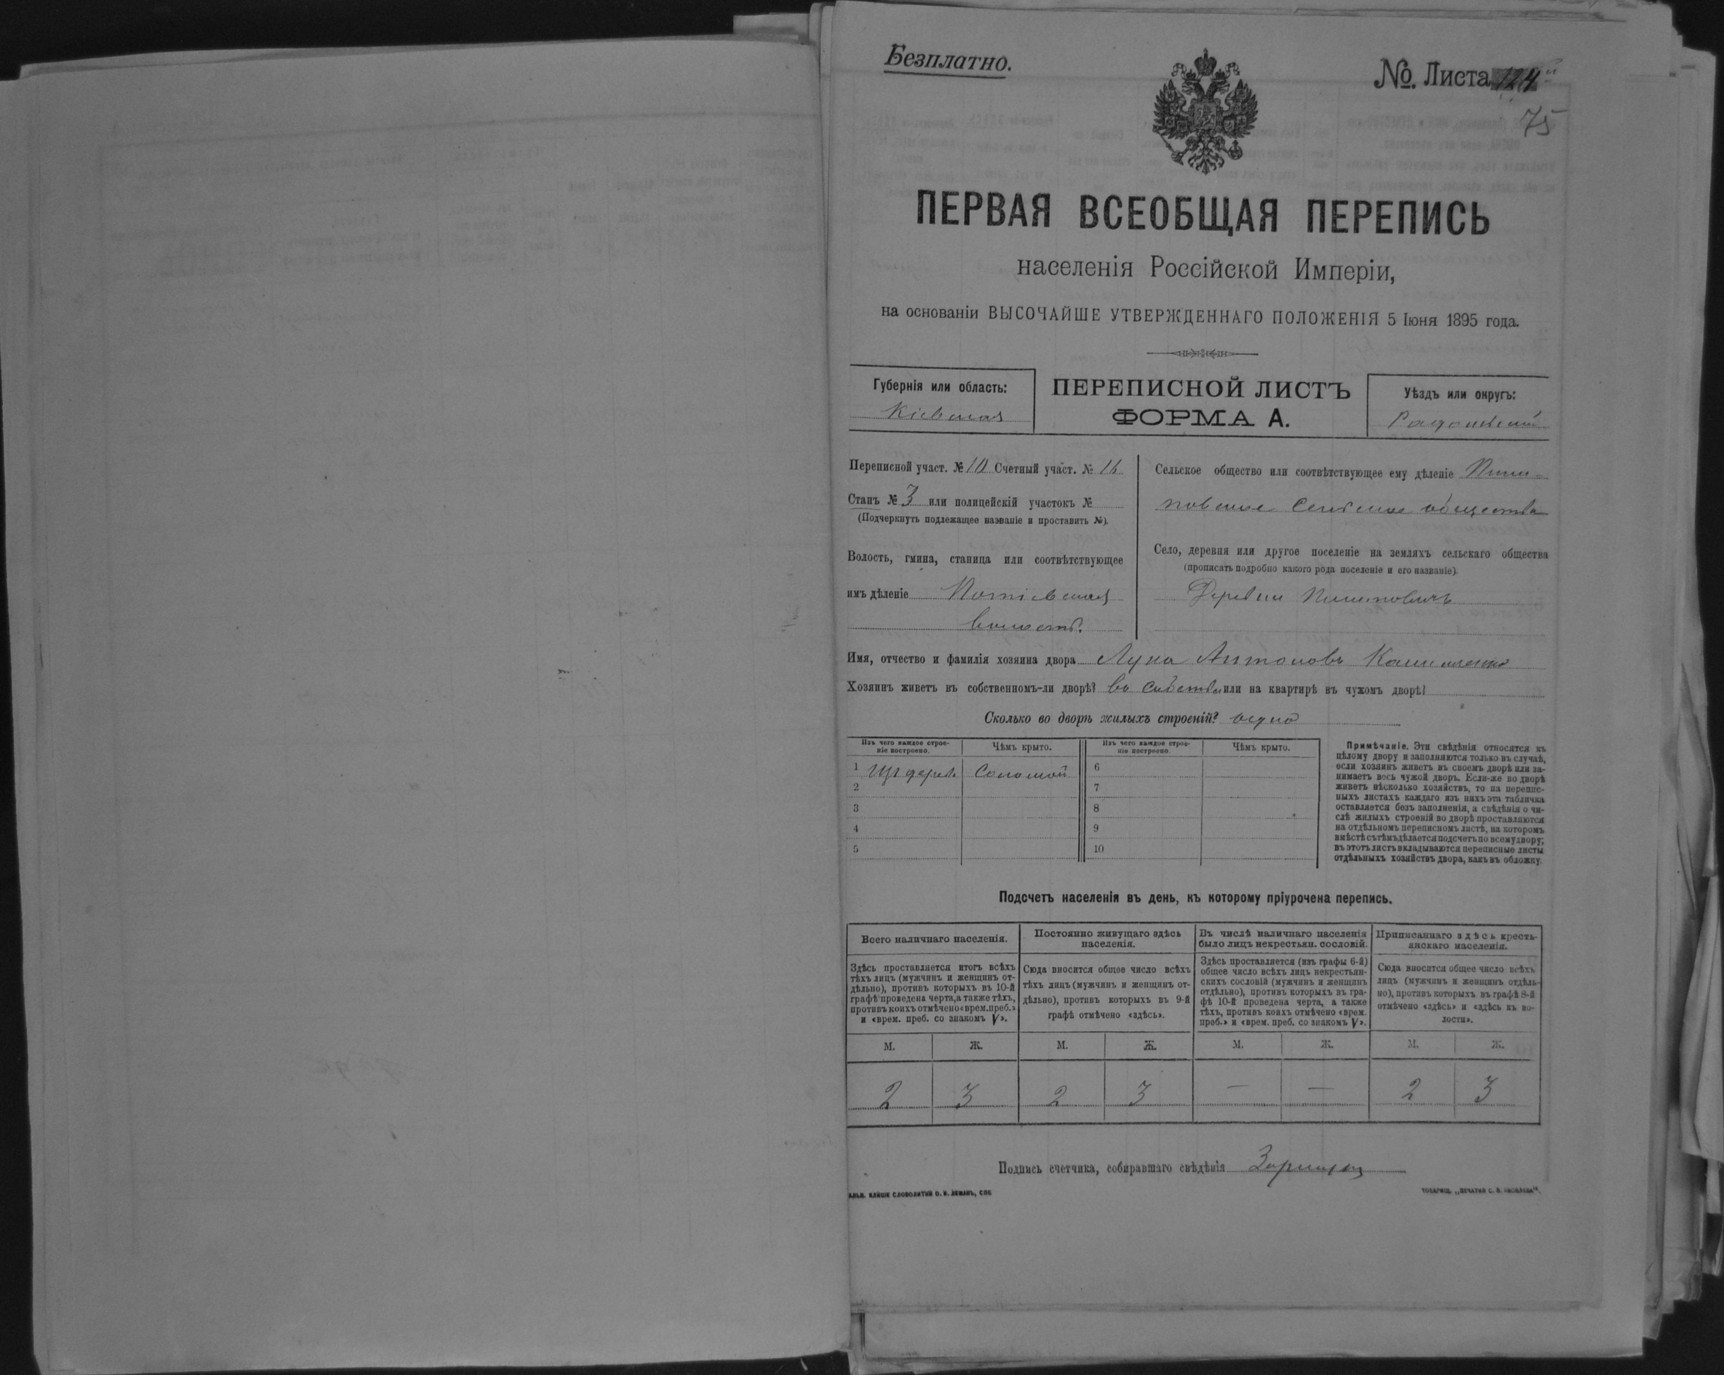 Безплатно.
№. Листа 124
75
ПЕРВАЯ ВСЕОБЩАЯ ПЕРЕПИСЬ
населенія Россійской Имперіи,
на основаніи ВЫСОЧАЙШЕ УТВЕРЖДЕННАГО ПОЛОЖЕНІЯ 5 Іюня 1895 года.
Губернія или область:
Кіевская
ПЕРЕПИСНОЙ ЛИСТЪ
ФОРМА А.
Уѣздъ или округъ:
Радомысл
Переписной участ. № 10 Счетный участ. № 16
Станъ № 3 или полицейскій участокъ №
(Подчеркнуть подлежащее названіе и проставить №).
Волость, гмина, станица или соотвѣтствующее
имъ дѣленіе Потіевская
волость.
Сельское общество или соотвѣтствующее ему дѣленіе
Сельское общество
Село, деревня или другое поселеніе на земляхъ сельскаго общества
(прописать подробно какого рода поселеніе и его названіе).
Деревня
Имя, отчество и фамилія хозяина двора Лука Антоновъ
Хозяинъ живетъ въ собственномъ-ли дворѣ? въ собств. или на квартирѣ въ чужомъ дворѣ?
Сколько во дворѣ жилыхъ строеній? одно
Изъ чего каждое строе-
ніе построено.
Чѣмъ крыто.
Изъ чего каждое строе-
ніе построено.
Чѣмъ крыто.
1 Изъ дерев. Соломой
2
3
4
5
6
7
8
9
10
Примѣчаніе. Эти свѣдѣнія относятся къ
цѣлому двору и заполняются только въ случаѣ,
если хозяинъ живетъ въ своемъ дворѣ или за-
нимаетъ весь чужой дворъ. Если-же во дворѣ
живетъ нѣсколько хозяйствъ, то на перепис-
ныхъ листахъ каждаго изъ нихъ эта табличка
оставляется безъ заполненія, а свѣдѣнія о чи-
слѣ жилыхъ строеній во дворѣ проставляются
на отдѣльномъ переписномъ листѣ, на которомъ
вмѣстѣ съ тѣмъ дѣлается подсчетъ по всему двору;
въ этотъ листъ вкладываются переписные листы
отдѣльныхъ хозяйствъ двора, какъ въ обложку.
Подсчетъ населенія въ день, къ которому пріурочена перепись.
Всего наличнаго населенія.
Здѣсь проставляется итогъ всѣхъ
тѣхъ лицъ (мужчинъ и женщинъ от-
дѣльно), противъ которыхъ въ 10-й
графѣ проведена черта, а также тѣхъ,
противъ коихъ отмѣчено «врем. преб.»
и «врем. преб. со знакомъ V».
Постоянно живущаго здѣсь
населенія.
Сюда вносится общее число всѣхъ
тѣхъ лицъ (мужчинъ и женщинъ от-
дѣльно), противъ которыхъ въ 9-й
графѣ отмѣчено «здѣсь».
Въ числѣ наличнаго населенія
было лицъ некрестьян. сословій.
Здѣсь проставляется (изъ графы 6-й)
общее число всѣхъ лицъ некрестьян-
скихъ сословій (мужчинъ и женщинъ
отдѣльно), противъ которыхъ въ гра-
фѣ 10-й проведена черта, а также
тѣхъ, противъ коихъ отмѣчено «врем.
преб.» и «врем. преб. со знакомъ V».
Приписаннаго здѣсь кресть-
янскаго населенія.
Сюда вносится общее число всѣхъ
лицъ (мужчинъ и женщинъ отдѣль-
но), противъ которыхъ въ графѣ 8-й
отмѣчено «здѣсь» и «здѣсь въ во-
лости».
М. Ж. М. Ж. М. Ж. М. Ж.
2 3 2 3 — — 2 3
Подпись счетчика, собиравшаго свѣдѣнія